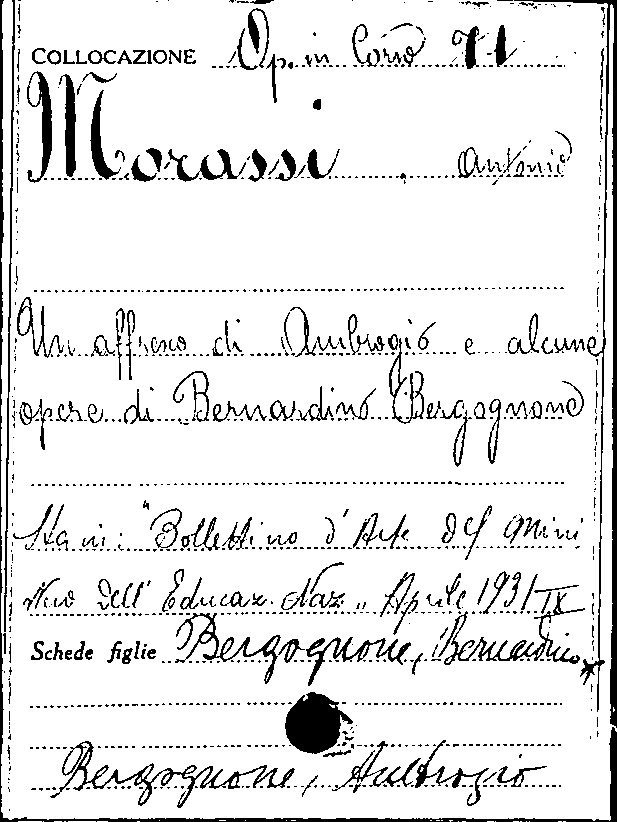 COLLOCAZIONE Op. in Corso 71
Morassi . Antonio
Un affresco di Ambrogio e alcune
opere di Bernardino Bergognone
Sta in: "Bollettino d'Arte del Mini
stero dell'Educaz. Naz." Aprile 1931 IX
Schede figlie Bergognone, Bernardino *
Bergognone, Ambrogio